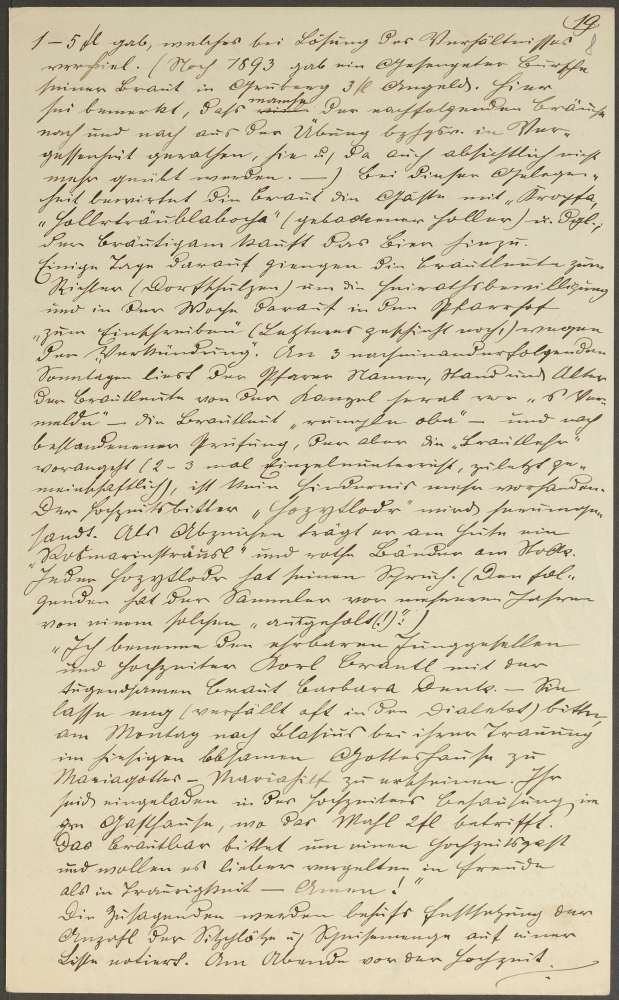 19
8
1–5 fl gab, welches bei Lösung des Verhältnisses
verfiel. (Noch 1893 gab ein Bursche
seiner Braut in Gruberg 3 fl Angeld. Hier
sei bemerkt, dass manche der nachfolgenden Bräuche
nach und nach aus der Übung bzhgsw. in Ver-
gessenheit gerathen, hie u. da auch absichtlich nicht
mehr geübt werden. —) Bei dieser Gelegen-
heit bewirtet die Braut die Gäste mit „Kropfa,
„Hollerträublabacha" (gebackener Holler) u. dgl.;
der Bräutigam kauft das Bier hinzu.
Einige Tage darauf giengen die Brautleute zum
Richter (Dorfschulzen) um die Heirathsbewilligung
und in der Woche darauf in den Pfarrhof
„zum Einschreiben" (Letzteres geschieht noch,) wegen
der „Verkündung". An 3 nacheinanderfolgenden
Sonntagen liest der Pfarrer Namen, Stand und Alter
der Brautleute von der Kanzel herab vor „'s Ver-
melda" — die Brautleut „ oba" — und nach
bestandenener Prüfung, der aber die „Brautlehr"
vorangeht (2–3 mal Einzelnunterricht, zuletzt ge-
meinschaftlich), ist kein Hindernis mehr vorhanden.
Der Hochzeitsbitter „Hozytlodr" wird herumge-
sandt. Als Abzeichen trägt er am Hute ein
„Rosmarinsträusl" und rothe Bänder am Stock.
Jeder Hozytlodr hat seinen Spruch. (Den fol-
genden hat der Sammler vor mehreren Jahren
von einem solchen „ausgehalt(!)":)
„Ich benenne den ehrbaren Junggesellen
und Hochzeiter Karl Bräutl mit der
tugendsamen Braut Barbara Dentz. — Sie
lasse eng (verfällt oft in den Dialekt) bitten,
am Montag nach Blasius bei ihrer Trauung
im hiesigen lobsamen Gotteshause zu
Mariagottes – Mariahilf zu erscheinen. Ihr
seid eingeladen in des Hochzeiters Behausung, im
Gasthause, wo das Mahl 2 fl betrifft.
Das Brautpaar bittet um einen Hochzeitsgast
und wollen es lieber vergelten in Freude
als in Traurigkeit — Amen!"
Die Zusagenden werden behufs Festsetzung der
Anzahl der Sitzplätze u. Speisemenge auf einer
Liste notiert. Am Abende vor der Hochzeit